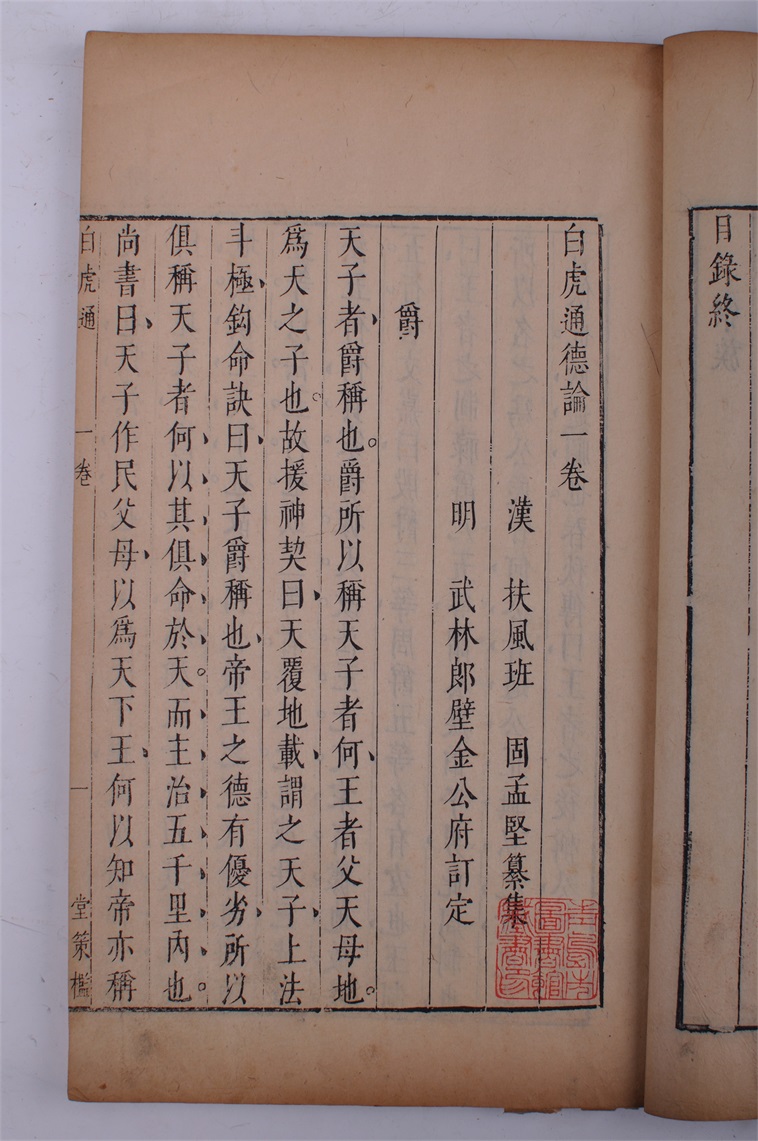 目錄終
白虎通德論一卷
漢 扶風班 固孟堅纂集
明 武林郎壁金公府訂定
爵
天子者、爵稱也。爵所以稱天子者何、王者父天母地。
爲天之子也。故援神契曰、天覆地載、謂之天子、上法
斗極、鈎命訣曰、天子爵稱也、帝王之德有優劣、所以
俱稱天子者何、以其俱命於天。而主治五千里内也。
尚書曰、天子作民父母、以爲天下王、何以知帝亦稱
白虎通 一卷 一 堂策檻